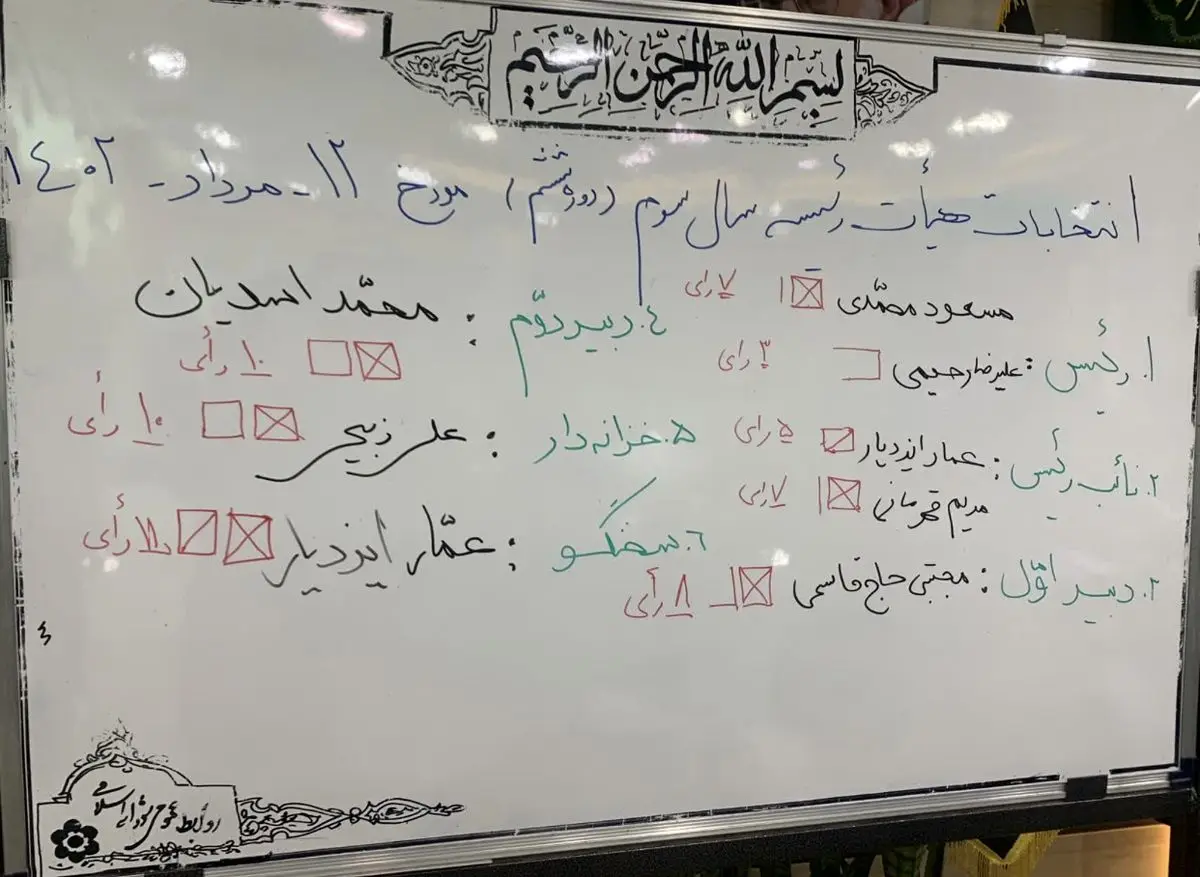 بسم الله الرحمن الرحیم
انتخابات هیأت رئیسه سال سوم (دوره ششم) مورخ ۱۲ - مرداد - ۱۴۰۲
مسعود محمدی ۷ رأی
۱. رئیس : علیرضا رحیمی ۳ رأی
۲. نائب رئیس : عمار ایزدیار ۵ رای
مریم قهرمانی ۷ رای
۳. دبیر اوّل : مجتبی حاج قاسمی ۸ رأی
٤. دبیر دوّم : محمّد اسدیان
۱۰ رأی
۵. خزانه دار : علی ذبیحی ۱۰ رأی
٦. سخنگو : عمّار ایزدیار ۱۱ رأی
٤
روابط عمومی شورای اسلامی